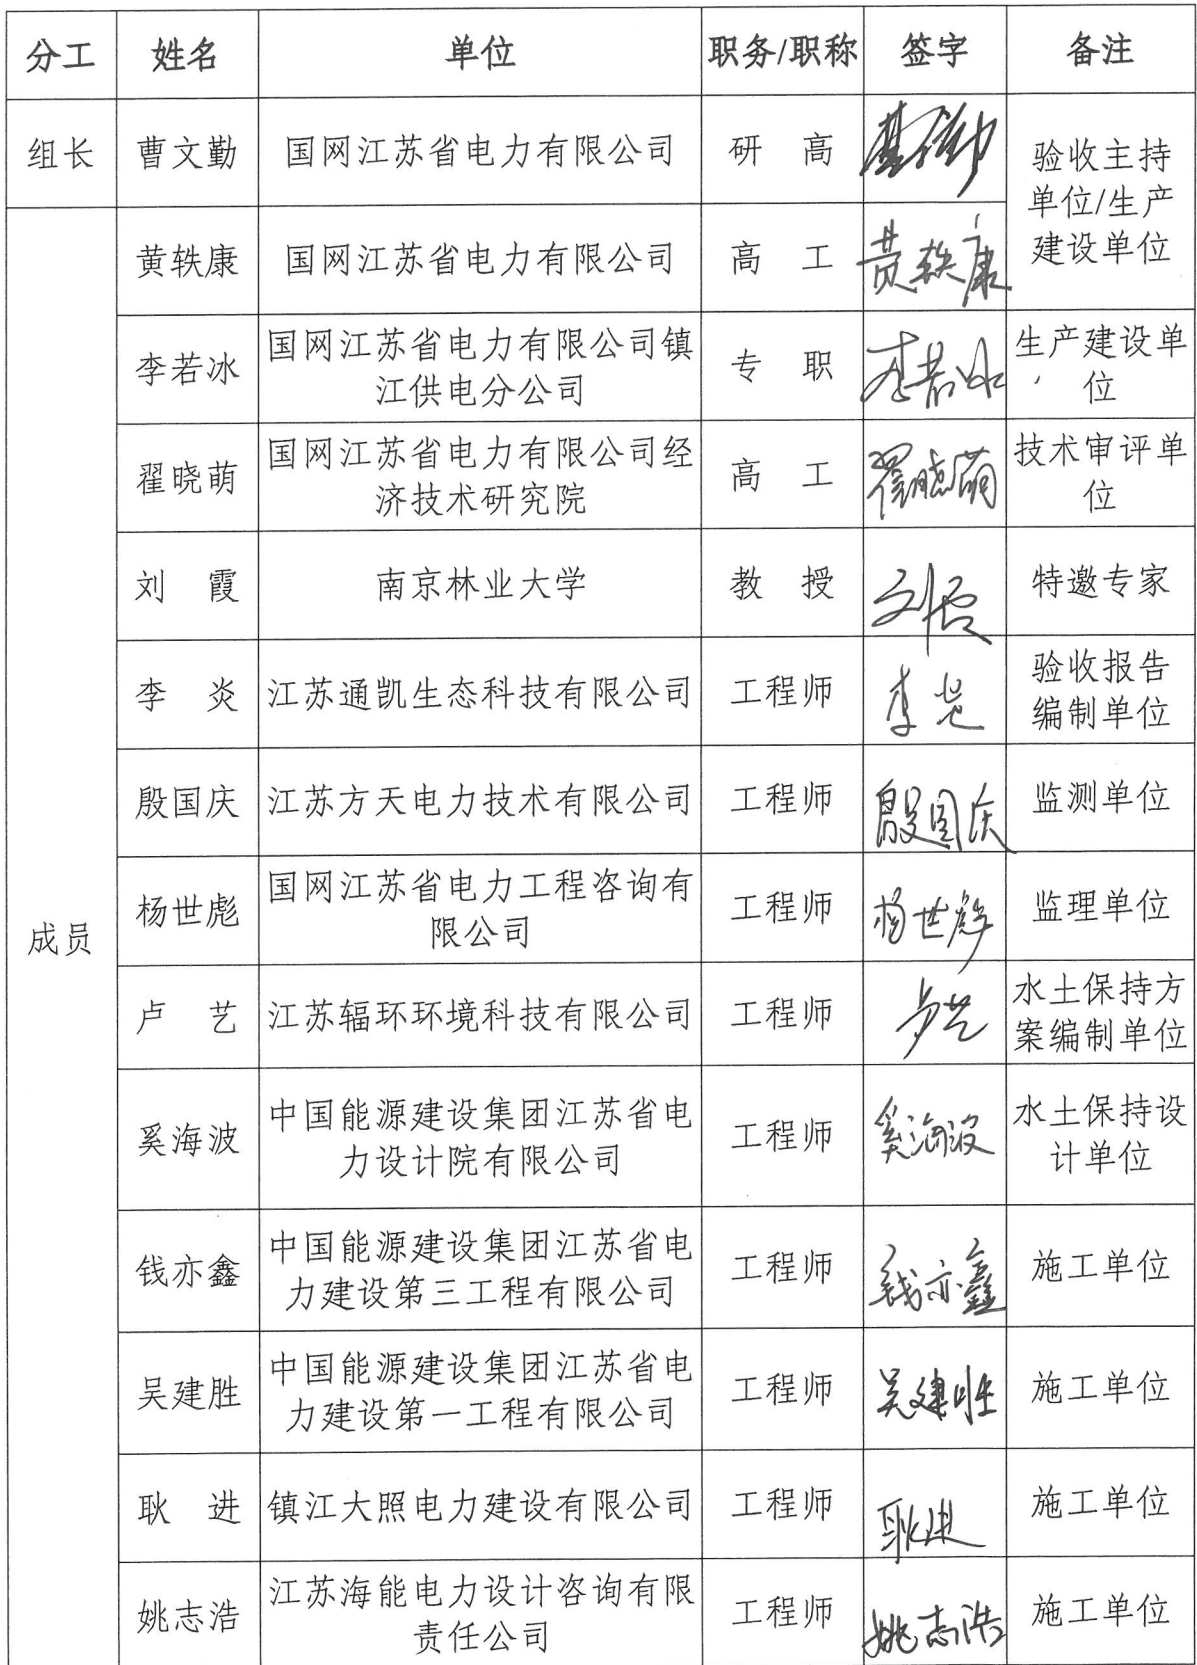 分工 姓名 单位 职务/职称 签字 备注
组长 曹文勤 国网江苏省电力有限公司 研 高 曹文勤
验收主持
单位/生产
建设单位
成员
黄轶康 国网江苏省电力有限公司 高 工 黄轶康
李若冰 国网江苏省电力有限公司镇
江供电分公司 专 职 李若冰 生产建设单
位
翟晓萌 国网江苏省电力有限公司经
济技术研究院 高 工 翟晓萌 技术审评单
位
刘 霞 南京林业大学 教 授 刘霞 特邀专家
李 炎 江苏通凯生态科技有限公司 工程师 李炎 验收报告
编制单位
殷国庆 江苏方天电力技术有限公司 工程师 殷国庆 监测单位
杨世彪 国网江苏省电力工程咨询有
限公司 工程师 杨世彪 监理单位
卢 艺 江苏辐环环境科技有限公司 工程师 卢艺 水土保持方
案编制单位
奚海波 中国能源建设集团江苏省电
力设计院有限公司 工程师 奚海波 水土保持设
计单位
钱亦鑫 中国能源建设集团江苏省电
力建设第三工程有限公司 工程师 钱亦鑫 施工单位
吴建胜 中国能源建设集团江苏省电
力建设第一工程有限公司 工程师 吴建胜 施工单位
耿 进 镇江大照电力建设有限公司 工程师 耿进 施工单位
姚志浩 江苏海能电力设计咨询有限
责任公司 工程师 姚志浩 施工单位